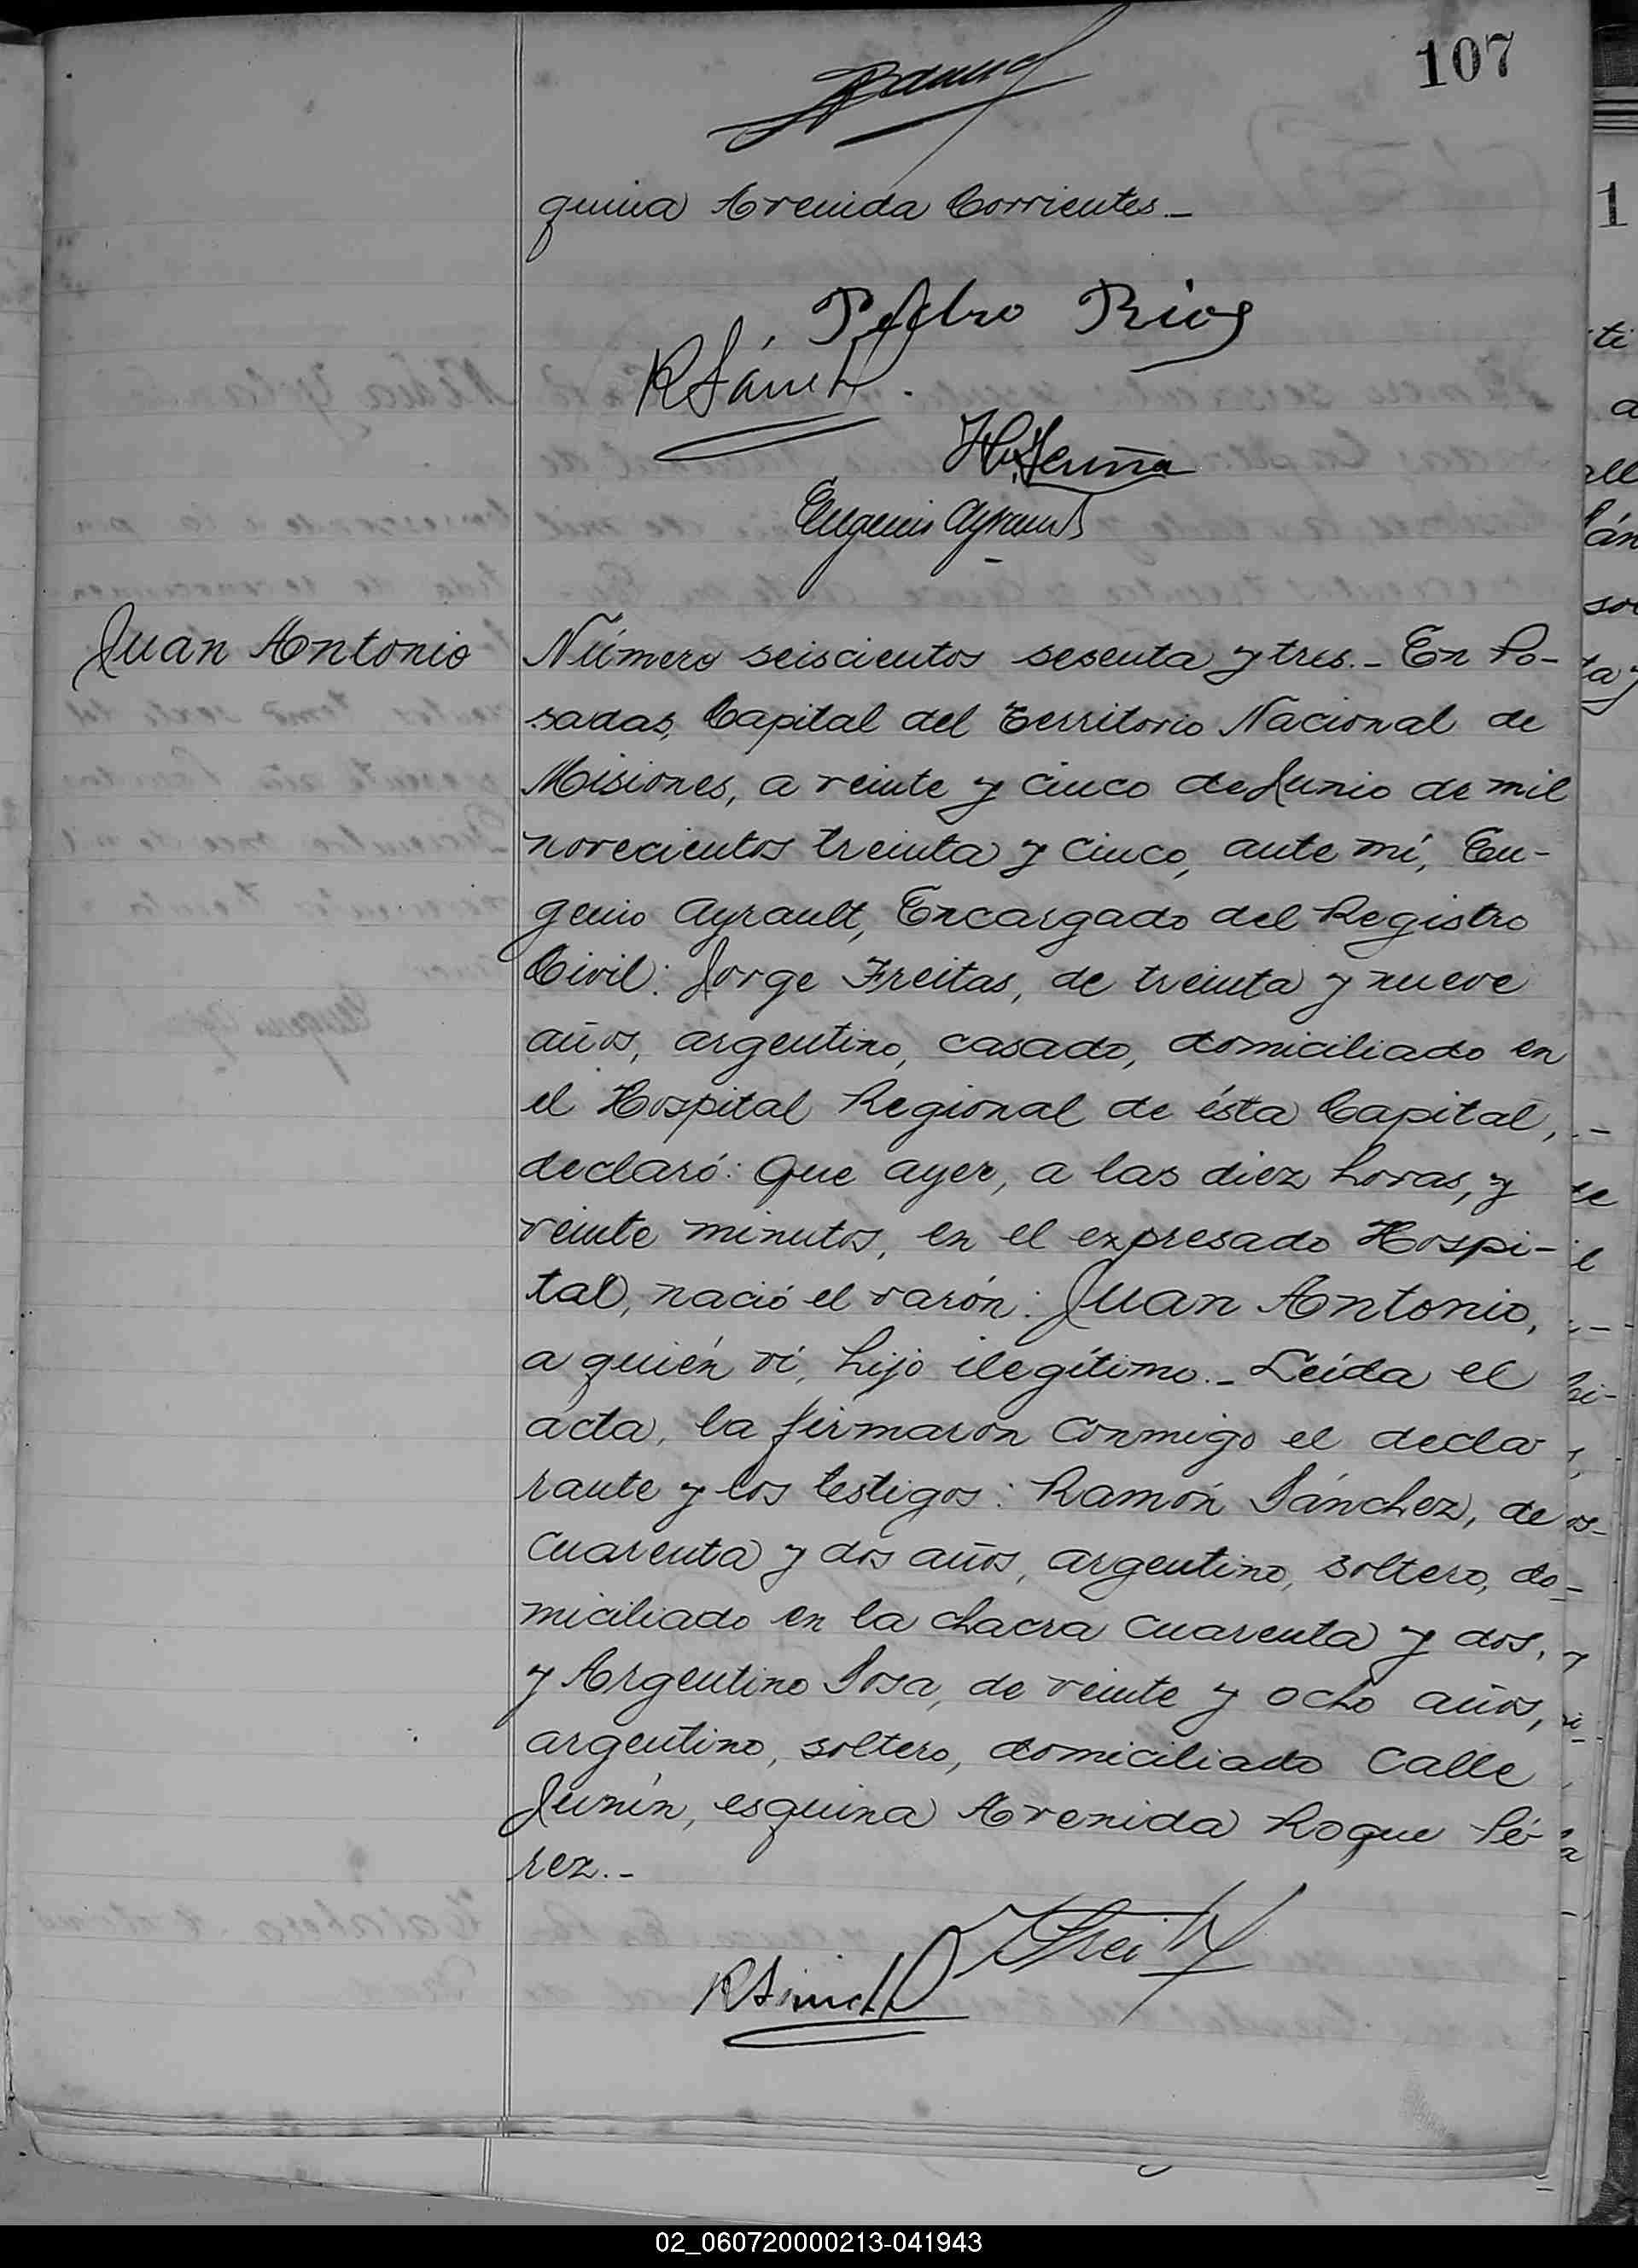 107
quina Avenida Corrientes._
Pedro Rios
RSánch
Eugenio Ayrault
Juan Antonio
Número seiscientos sesenta y tres._ En Po-
sadas, Capital del Territorio Nacional de
Misiones, a veinte y cinco de Junio de mil
novecientos treinta y cinco, ante mí, Eu-
genio Ayrault, Encargado del Registro
Civil: Jorge Freitas, de treinta y nueve
años, argentino, casado, domiciliado en
el Hospital Regional de ésta Capital,
declaró: Que ayer, a las diez horas, y
veinte minutos, en el expresado Hospi-
tal, nació el varón: Juan Antonio,
a quién ví, hijo ilegítimo._ Leída el
acta, la firmaron conmigo el decla-
rante y los testigos: Ramón Sánchez, de
cuarenta y dos años, argentino, soltero, do-
miciliado en la chacra cuarenta y dos,
y Argentino Sosa, de veinte y ocho años,
argentino, soltero, domiciliado calle
Junín, esquina Avenida Roque Pé-
rez._
02_060720000213-041943